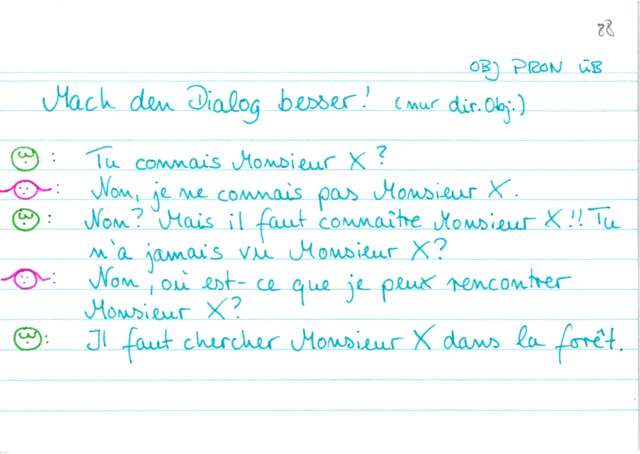 28
OBJ PRON ÜB
Mach den Dialog besser! (nur dir. Obj.)
: Tu connais Monsieur X?
: Non, je ne connais pas Monsieur X.
: Non? Mais il faut connaître Monsieur X!! Tu
n'a jamais vu Monsieur X?
: Non, où est-ce que je peux rencontrer
Monsieur X?
: Il faut chercher Monsieur X dans la forêt.